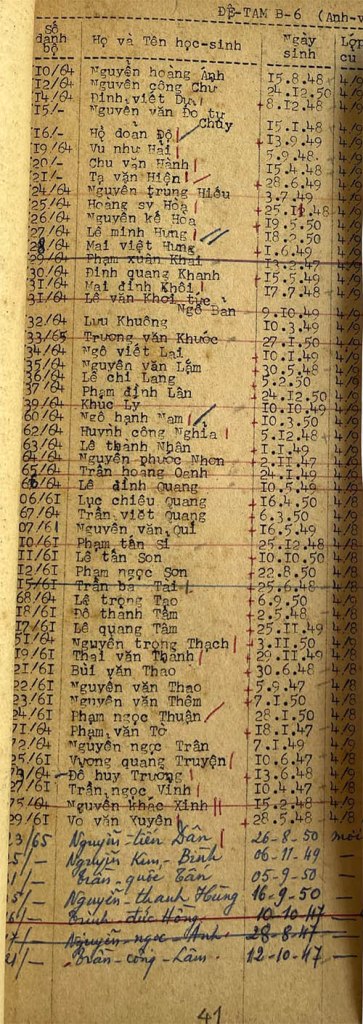 ĐỆ-TAM B-6 (Anh-v
Số danh bộ Họ và Tên học-sinh Ngày sinh Lớp cũ
10/64 Nguyễn hoàng Ánh 15.8.48 4/
12/64 Nguyễn công Chư 24.12.50 4/
14/64 Đinh viết Dự 8.12.48 4/
15/- Nguyễn văn Đỗ tự Chủy 15.1.48 4/
16/- Hồ doãn Độ 13.9.49 4/9
19/64 Vũ như Hải 5.9.48 4/
20/- Chu văn Hành 15.4.48 4/
21/- Tạ văn Hiện 28.6.49 4/
24/64 Nguyễn trung Hiếu 3.7.49 4/9
25/64 Hoàng sỹ Hòa 25.11.48 4/9
26/64 Nguyễn kế Hòa 19.5.50 4/9
27/64 Lê minh Hưng 18.2.50 4/9
28/64 Mai việt Hưng 1.6.49 4/9
29/64 Phạm xuân Khải 13.2.47 4/9
30/64 Đinh quang Khanh 15.5.49 4/9
31/64 Mai đình Khôi 17.7.48 4/9
31/64 Lê văn Khơi tức Ngô Bản 9.10.49 4/9
32/64 Lưu Khuông 10.3.49 4/9
33/65 Trương văn Khước 27.1.50 4/9
34/64 Ngô viết Lai 10.1.49 4/9
35/64 Nguyễn văn Lắm 30.5.48 4/9
36/64 Lê chí Lang 5.2.50 4/9
37/64 Phạm đình Lân 24.12.50 4/9
39/64 Khúc Ly 10.10.49 4/9
60/64 Ngô hạnh Nam 10.3.50 4/9
62/64 Huỳnh công Nghĩa 5.12.48 4/9
63/64 Lê thành Nhân 1.1.49 4/9
64/64 Nguyễn phước Nhơn 2.11.47 4/9
65/64 Trần hoàng Oanh 24.1.49 4/9
66/64 Lê đình Quang 10.5.49 4/9
06/61 Lục chiêu Quang 16.4.50 4/8
67/64 Trần viết Quang 6.3.50 4/9
07/61 Nguyễn văn Quí 16.5.49 4/8
10/61 Phạm tấn Sĩ 25.12.48 4/8
11/61 Lê tấn Sơn 10.10.50 4/8
12/61 Phạm ngọc Sơn 22.8.50 4/8
15/61 Trần bá Tài 25.6.48 4/8
68/64 Lê trọng Tạo 6.9.50 4/9
18/61 Đỗ thành Tâm 2.5.48 4/8
17/61 Lê quang Tâm 25.11.49 4/8
51/64 Nguyễn trọng Thạch 3.11.50 4/9
19/61 Thái văn Thành 29.11.49 4/8
21/61 Bùi văn Thao 30.6.48 4/8
22/61 Nguyễn văn Thao 5.9.47 4/8
23/61 Nguyễn văn Thêm 7.1.50 4/8
24/61 Phạm ngọc Thuận 28.1.50 4/8
71/64 Phạm văn Tố 18.1.47 4/9
72/64 Nguyễn ngọc Trân 7.1.49 4/9
25/61 Vương quang Truyện 10.6.47 4/8
73/64 Đỗ huy Trường 13.6.48 4/9
27/61 Trần ngọc Vinh 10.4.47 4/8
75/64 Nguyễn khắc Xinh 15.2.48 4/9
29/61 Võ văn Xuyên 28.5.48 4/8
23/65 Nguyễn-tiến Dần 26-8-50 mới
5/- Nguyễn Kim-Bình 06-11-49 -
1/- Trần-quốc Tân 05-9-50 -
5/- Nguyễn-thanh Hùng 16-9-50 -
6/- Trịnh-đức Hồng 10-10-47 -
7/- Nguyễn-ngọc-Anh 28-8-47 -
21/- Trần-công-Lâm 12-10-47 -
41